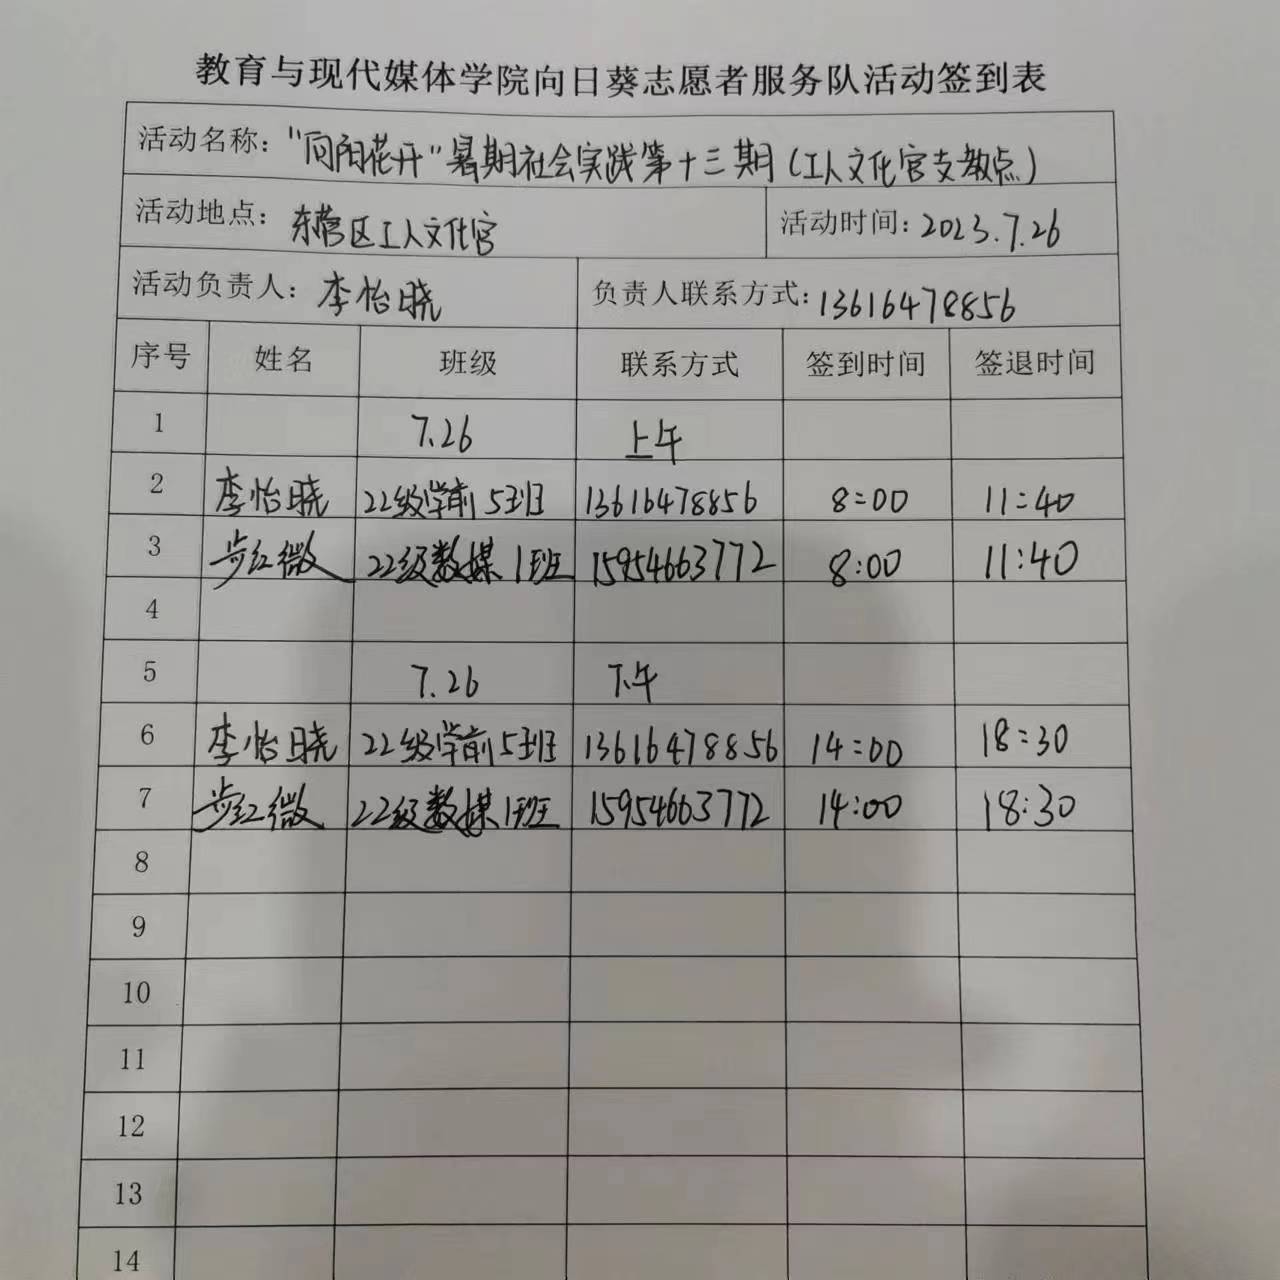 教育与现代媒体学院向日葵志愿者服务队活动签到表
活动名称："向阳花开"暑期社会实践第十三期(工人文化宫支教点)
活动地点：东营区工人文化宫 活动时间：2023.7.26
活动负责人：李怡晓 负责人联系方式：13616478856
序号 姓名 班级 联系方式 签到时间 签退时间
1 7.26 上午
2 李怡晓 22级学前5班 13616478856 8:00 11:40
3 步红微 22级数媒1班 15954663772 8:00 11:40
4
5 7.26 下午
6 李怡晓 22级学前5班 13616478856 14:00 18:30
7 步红微 22级数媒1班 15954663772 14:00 18:30
8
9
10
11
12
13
14